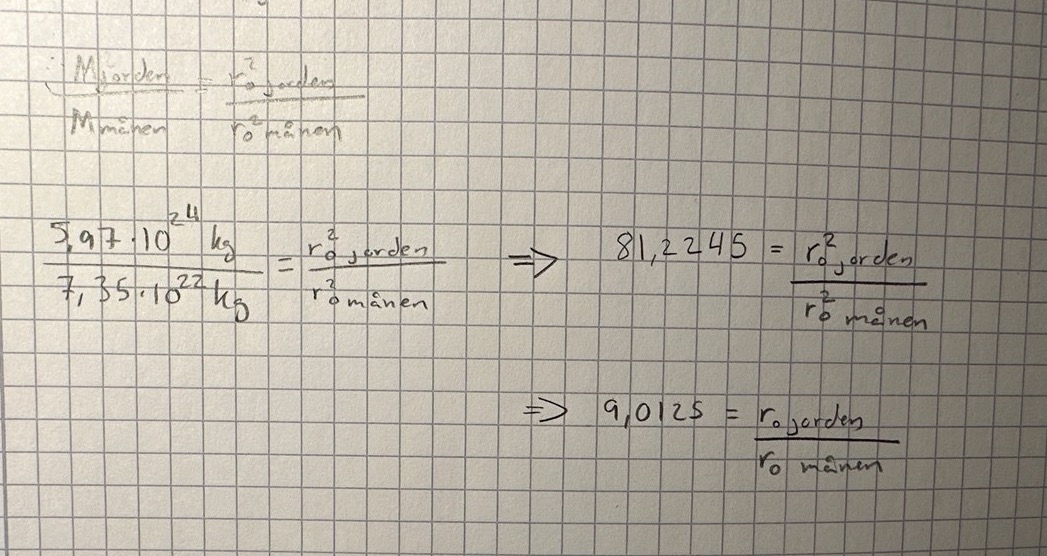 M jorden / M månen = r₀² jorden / r₀² månen
5,97·10²⁴ kg / 7,35·10²² kg = r₀² jorden / r₀² månen ⇒ 81,2245 = r₀² jorden / r₀² månen
⇒ 9,0125 = r₀ jorden / r₀ månen